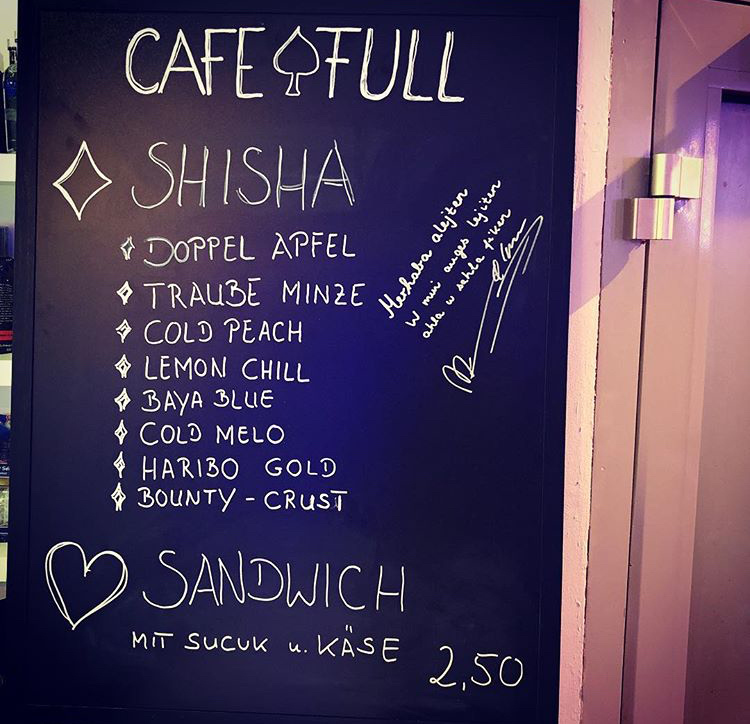 CAFE FULL
SHISHA
DOPPEL APFEL
TRAUBE MINZE
COLD PEACH
LEMON CHILL
BAYA BLUE
COLD MELO
HARIBO GOLD
BOUNTY - CRUST
Merhaba alejten
W mui auges lejiten
ahla w sahla fiken
SANDWICH
MIT SUCUK u. KÄSE
2,50